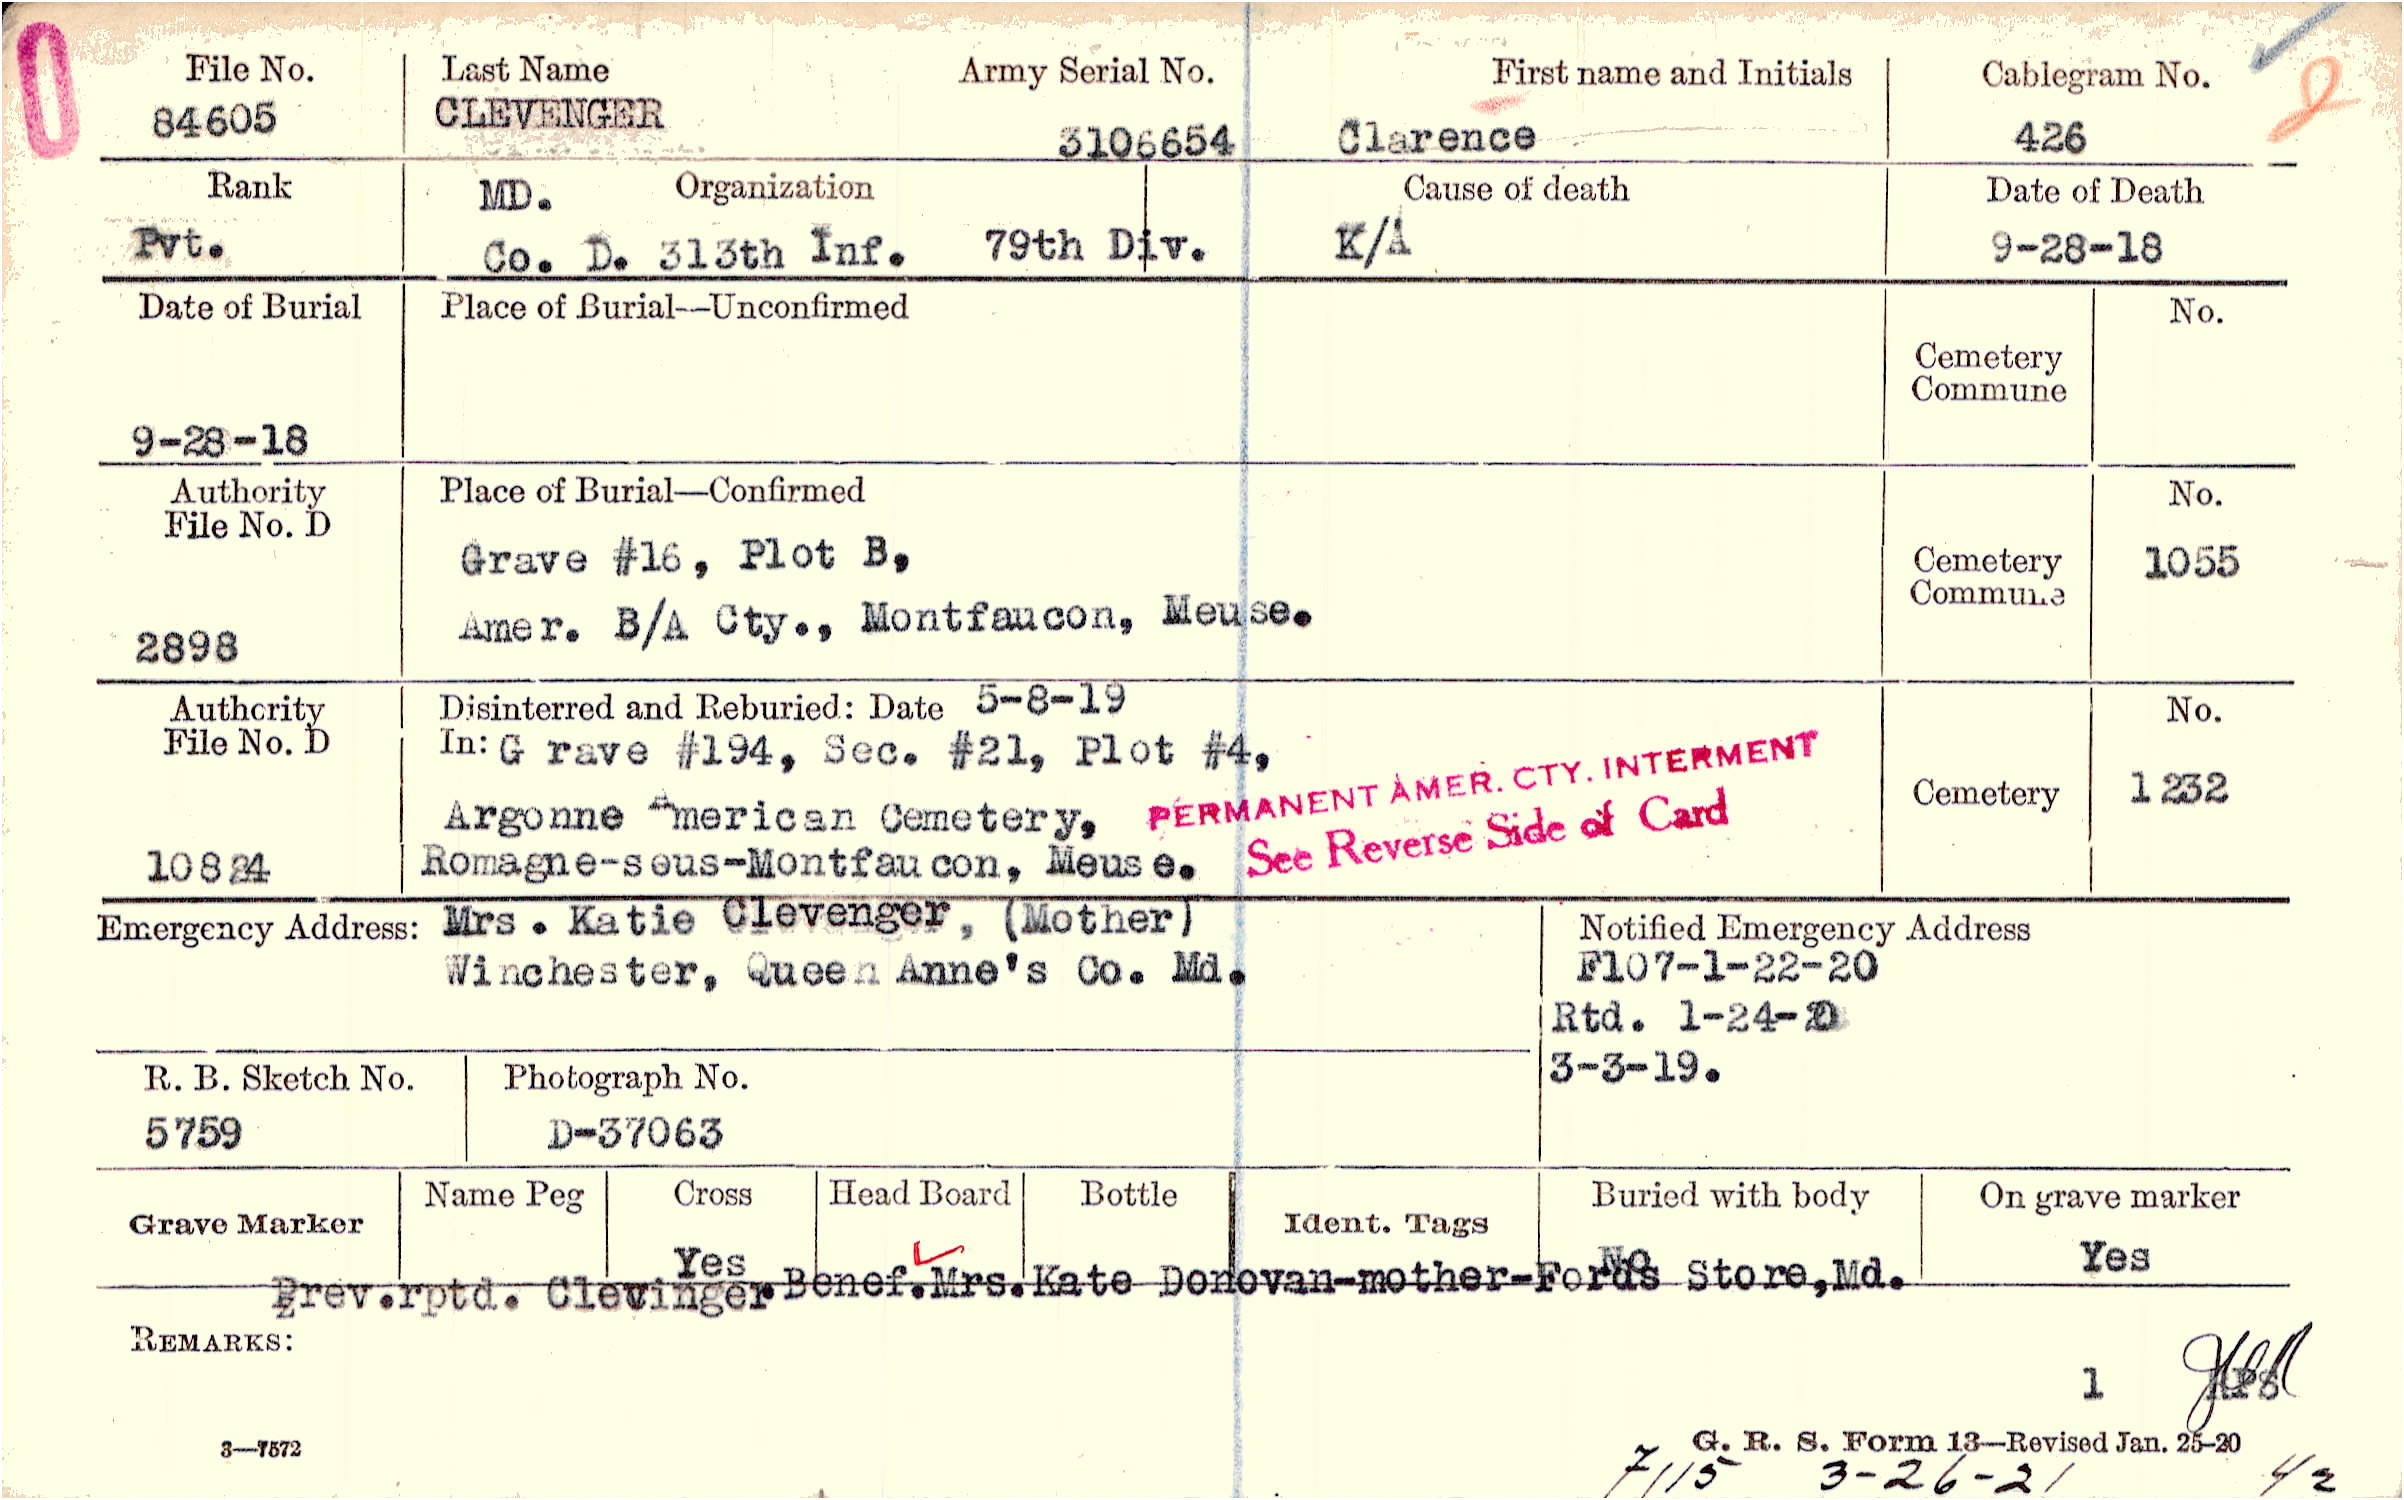 File No. Last Name Army Serial No. First name and Initials Cablegram No.
84605 CLEVENGER 3106654 Clarence 426
Rank MD. Organization Cause of death Date of Death
Pvt. Co. D. 313th Inf. 79th Div. K/A 9-28-18
Date of Burial Place of Burial—Unconfirmed No.
Cemetery
Commune
9-28-18
Authority Place of Burial—Confirmed No.
File No. D
Grave #16, Plot B, Cemetery 1055
Commune
Amer. B/A Cty., Montfaucon, Meuse.
2898
Authority Disinterred and Reburied: Date 5-8-19 No.
File No. D In: G rave #194, Sec. #21, Plot #4,
PERMANENT AMER. CTY. INTERMENT
Argonne American Cemetery, See Reverse Side of Card Cemetery 1232
10824 Romagne-sous-Montfaucon, Meuse.
Emergency Address: Mrs. Katie Clevenger, (Mother) Notified Emergency Address
Winchester, Queen Anne's Co. Md. F107-1-22-20
Rtd. 1-24-20
3-3-19.
R. B. Sketch No. Photograph No.
5759 D-37063
Grave Marker Name Peg Cross Head Board Bottle Ident. Tags Buried with body On grave marker
Yes No Yes
Prev.rptd. Clevinger Benef.Mrs.Kate Donovan-mother-Fords Store,Md.
REMARKS:
1
3—7572 G. R. S. Form 13—Revised Jan. 25-20
7115 3-26-21